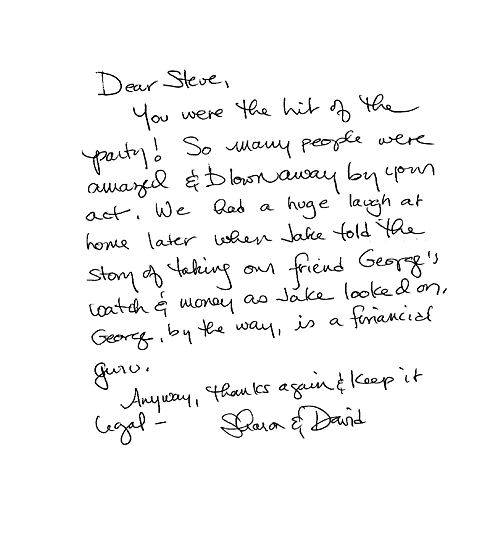 Dear Steve,
You were the hit of the
party! So many people were
amazed & blown away by your
act. We had a huge laugh at
home later when Jake told the
story of taking our friend George's
watch & money as Jake looked on.
George, by the way, is a financial
guru.
Anyway, thanks again & keep it
legal – Sharon & David